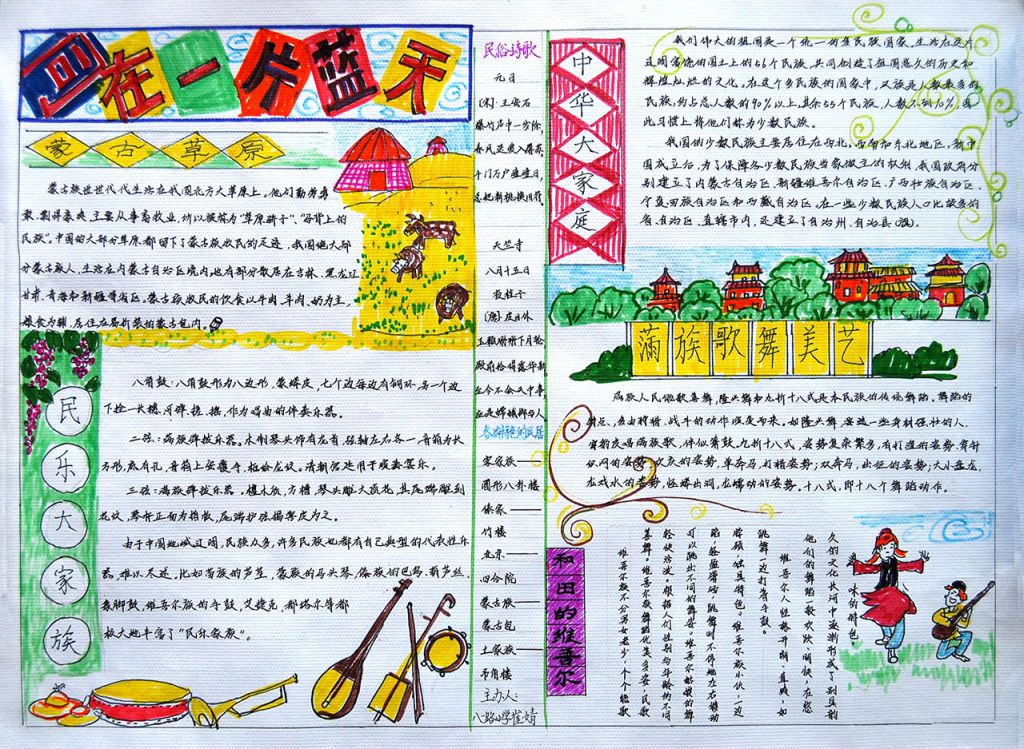 同在一片蓝天
蒙古草原
蒙古族世世代代生活在我国北方大草原上,他们勤劳勇
敢、剽悍豪爽,主要从事畜牧业,所以被称为“草原骄子”、“马背上的
民族”。中国的大部分草原都留下了蒙古族牧民的足迹,我国绝大部
分蒙古族人,生活在内蒙古自治区境内也有部分散居在吉林、黑龙江
甘肃、青海和新疆等省区,蒙古族牧民的饮食以牛肉、羊肉、奶为主,
粮食为辅,居住在易折装的蒙古包内。
民乐大家族
八角鼓:八角鼓形为八边形,蒙蟒皮,七个边每边有铜环,另一个边
下拴一长穗,可弹、摇、搓,作为唱曲的伴奏乐器。
二弦:满族弹拨乐器。木制琴头饰有
三弦:满族弹拨乐器。
花纹,琴杆正面为指板,尾端护弦
由于中国地域辽阔,民族众多,许多民族也都有自己典型的代表性乐
器,难以尽述,比如苗族的芦笙,蒙族的马头琴,傣族的巴乌、葫芦丝、
象脚鼓,维吾尔族的手鼓,艾捷克,都塔尔等都
极大地丰富了“民乐家族”。
民俗诗歌
元日
[宋]·王安石
爆竹声中一岁除,
春风送暖入屠苏,
千门万户曈曈日,
总把新桃换旧符。
天竺寺
八月十五日
夜桂子
[唐]皮日休
玉颗珊珊下月轮
殿前拾得露华新
至今不会天中事
应是嫦娥掷与人
各具特色的民居
客家族——
圆形八卦楼
傣家——
竹楼
北京——
四合院
蒙古族——
蒙古包
土家族——
吊角楼
主办人:
八路小学崔婧
中华大家庭
我们伟大的祖国是一个统一的多民族国家,生活在这片
辽阔富饶的国土上的56个民族,共同创造了祖国悠久的历史和
辉煌灿烂的文化,在这个多民族的国家中,汉族是人数最多的
民族,约占总人数的90%以上,其余55个民族,人数不到10%,因
此习惯上将他们称为少数民族。
我国的少数民族主要居住在西北,西南和东北地区,新中
国成立后,为了保障各少数民族当家做主的权利,我国政府分
别建立了内蒙古自治区、新疆维吾尔自治区、广西壮族自治区、
宁夏回族自治区和西藏自治区,在一些少数民族人口比较多的
省、自治区、直辖市内,还建立了自治州、自治县(旗)。
满族歌舞美艺
满族人民能歌善舞,隆兴舞和九折十八式是本民族的传统舞蹈。舞蹈的
特点,是由狩猎、战斗的动作演变而来。如隆兴舞,要选一些身材强壮的人,
穿豹皮唱满族歌,伴似箫鼓,九折十八式,姿势复杂繁多,有打渔的姿势,穿针
织网的姿势,吹灰的姿势,单奔马,打猎姿势;双奔马,出征的姿势;大小盘龙,
龙戏水的姿势,怪蟒出洞,龙蠕动的姿势。十八式,即十八个舞蹈动作。
和田的维吾尔
维吾尔族不分男女老少,个个能歌
善舞,维吾尔族舞蹈优美多姿,民歌
轻快活泼,根据人们性别与年龄的不同
可以跳出不同的舞姿,维吾尔姑娘的舞
蹈,轻盈潇洒,跳舞时不停地左右移动
脖颈,独具特色,维吾尔族小伙,一边
跳舞一边打着手鼓。
维吾尔人性格开朗、直爽,如
他们的舞蹈一般,欢跃、明快,在悠
久的文化长河中逐渐形成了别具韵
味的特色。